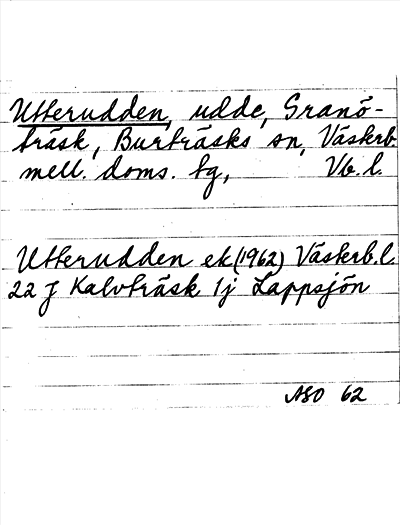 Utterudden, udde, Granö-
träsk, Burträsks sn, Västerb.
mell. doms. tg, Vb. l.
Utterudden ek (1962) Västerb. l
22 J Kalvträsk 1j Lappsjön
ASO 62